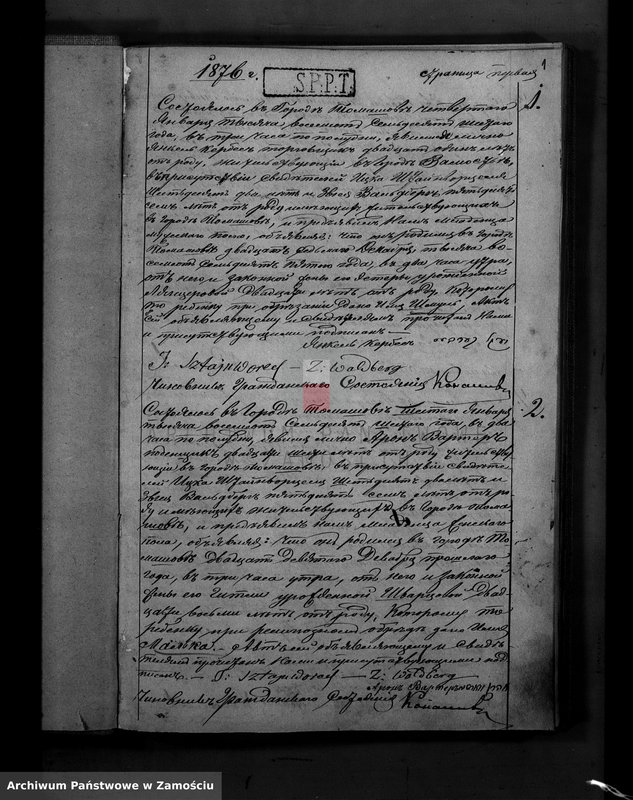 1876 г.
S.P.P.T.
страница первая
1
1.
Состоялось въ Городѣ Томашовѣ четвертаго
Января тысяча восемьсотъ семьдесятъ шестаго
года, въ три часа по полудни, явился лично
Янкель Корбен торговецъ двадцати
отъ роду, жительствующій въ Городѣ
въ присутствіи свидѣтелей Ицка Штайнворцеля
шестьдесятъ два лѣтъ и Звея Вальдберг, пятьдесятъ
семь лѣтъ отъ роду имѣющихъ, жительствующихъ
въ Городѣ Томашовѣ, и предъявилъ Намъ младенца
мужескаго пола, объявляя: что онъ родился въ Городѣ
Томашовѣ двадцать седьмаго Декабря, тысяча во-
семьсотъ семьдесятъ пятаго года, въ два часа утра,
отъ него и законной жены его Эстеры урожденной
двадцати лѣтъ отъ роду. Которому
то ребёнку при обрѣзаніи дано имя Актъ
сей объявляющему и свидѣтелямъ прочитанъ Нами
и присутствующими подписанъ —
Янкель Корбен
I: Sztajnworcel — Z: Waldberg
Чиновникъ Гражданскаго Состоянія
2.
Состоялось въ Городѣ Томашовѣ Шестаго Января
тысяча восемьсотъ семьдесятъ шестаго года, въ два
часа по полудни, явился лично Аронъ Вартеръ
поденщикъ двадцати шести лѣтъ отъ роду жительству-
ющій въ Городѣ Томашовѣ, въ присутствіи свидѣте-
лей Ицка Штайнворцеля шестьдесятъ два лѣтъ и
Звея Вальдберг пятьдесятъ семь лѣтъ отъ ро-
ду имѣющихъ жительствующихъ въ Городѣ Тома-
шовѣ, и предъявилъ Намъ младенца женскаго
пола, объявляя: что она родилась въ Городѣ То-
машовѣ двадцать девятаго Декабря прошлаго
года, въ три часа утра, отъ него и законной
жены его Гитли урожденной Шварцовой двад-
цати восьми лѣтъ отъ роду, Которому то
ребёнку при религіозномъ обрядѣ дано имя
Малька. — Актъ сей объявляющему и свидѣ-
телямъ прочитанъ Нами и присутствующими под-
писанъ. — I: Sztajnworcel — Z: Waldberg
Аронъ Вартеръ
Чиновникъ Гражданскаго Состоянія
Archiwum Państwowe w Zamościu